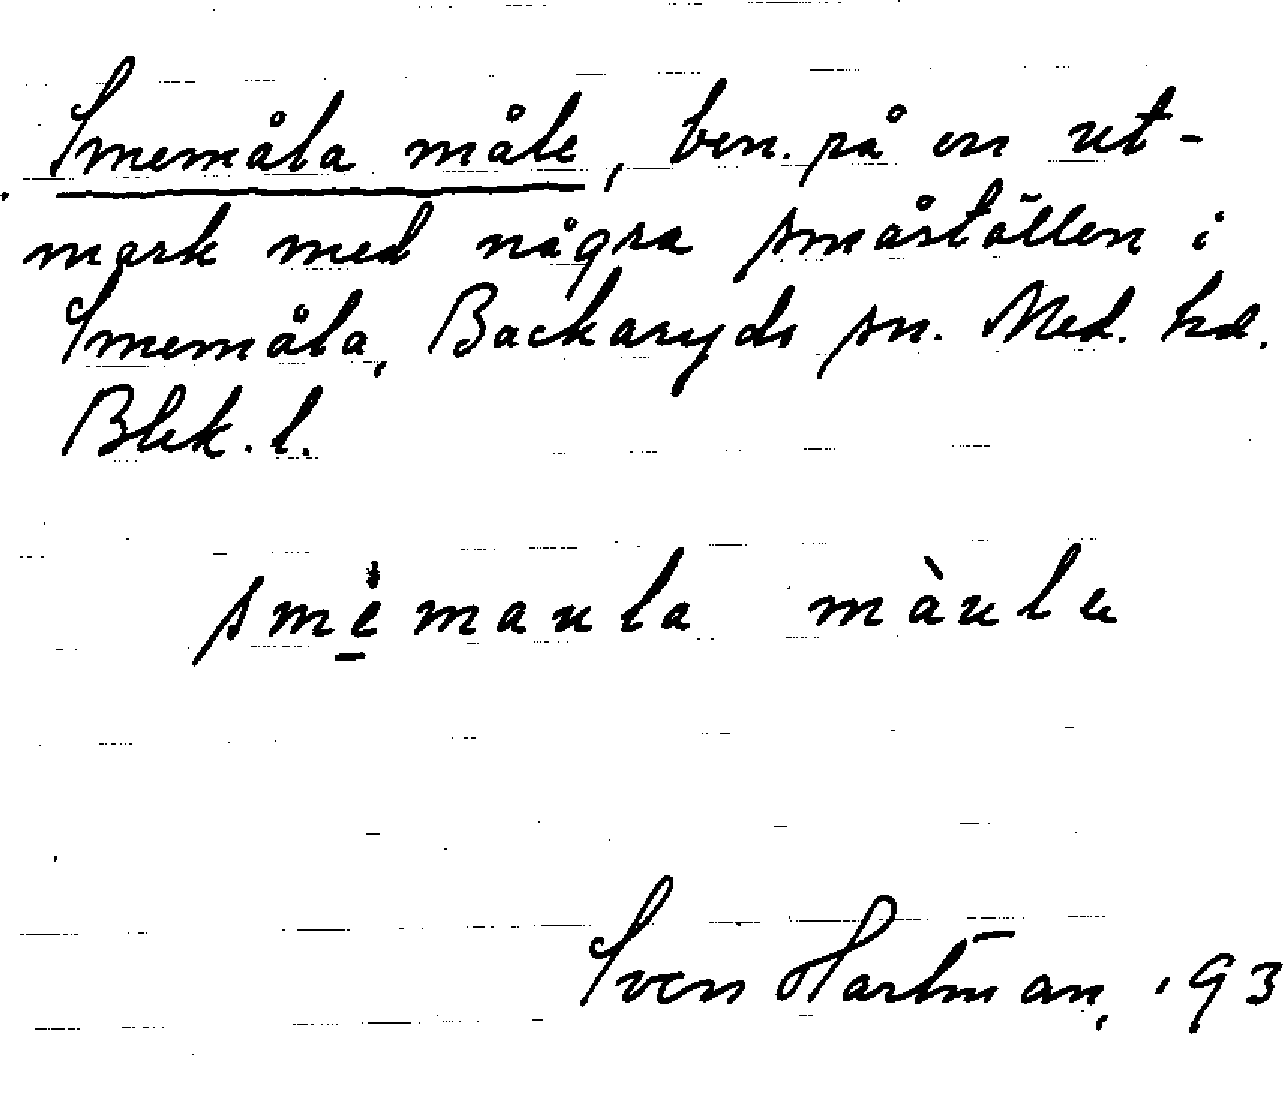 Smemåla måle, ben. på en ut-
mark med några småställen i
Smemåla, Backaryds sn. Med. hd.
Blek. l.
smèmaula màule
Sven Hartman, '93